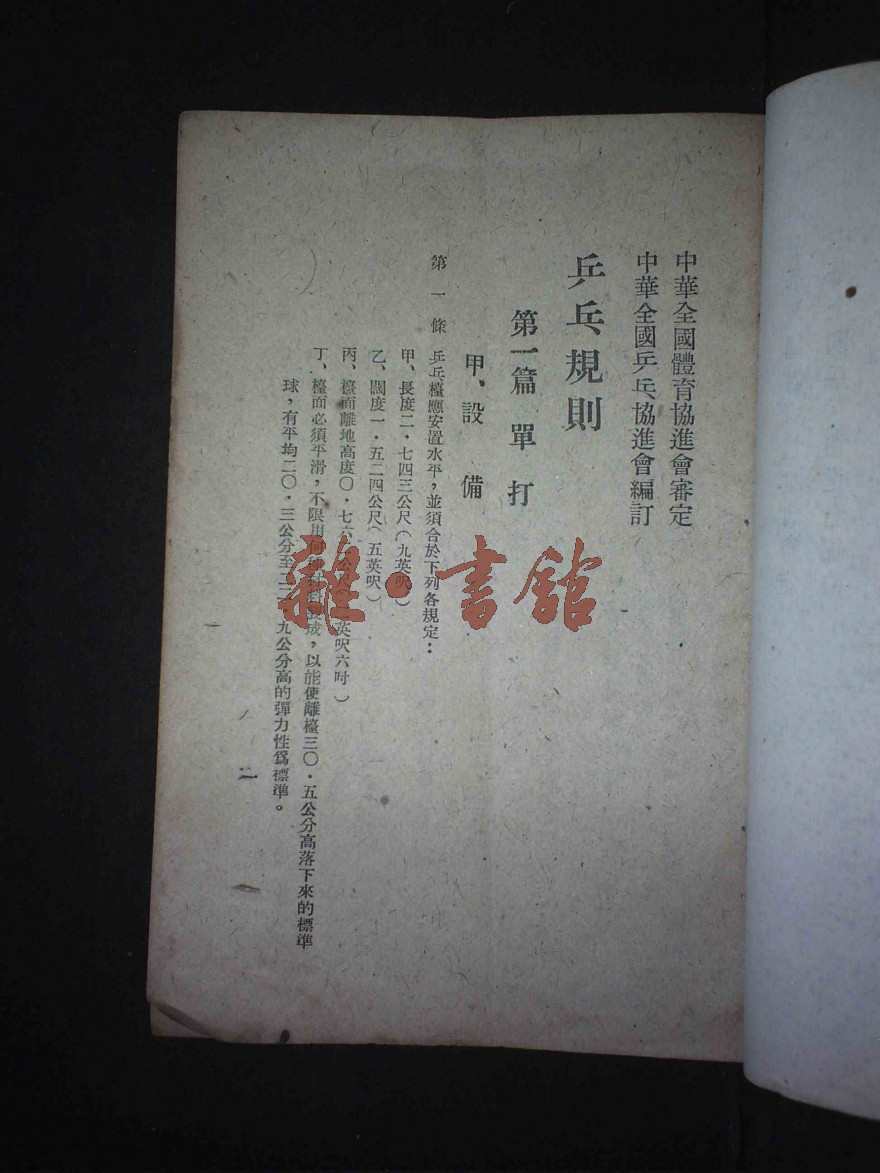 中華全國體育協進會審定
中華全國乒乓協進會編訂
乒乓規則
第一篇 單打
甲、設備
第一條 乒乓檯應安置水平，並須合於下列各規定：
甲、長度二·七四三公尺（九英呎）
乙、闊度一·五二四公尺（五英呎）
丙、檯面離地高度〇·七六 英呎六吋）
丁、檯面必須平滑，不限用何種材料製成，以能使離檯三〇·五公分高落下來的標準
球，有平均二〇·三公分至二二·九公分高的彈力性爲標準。
二
雜·書館